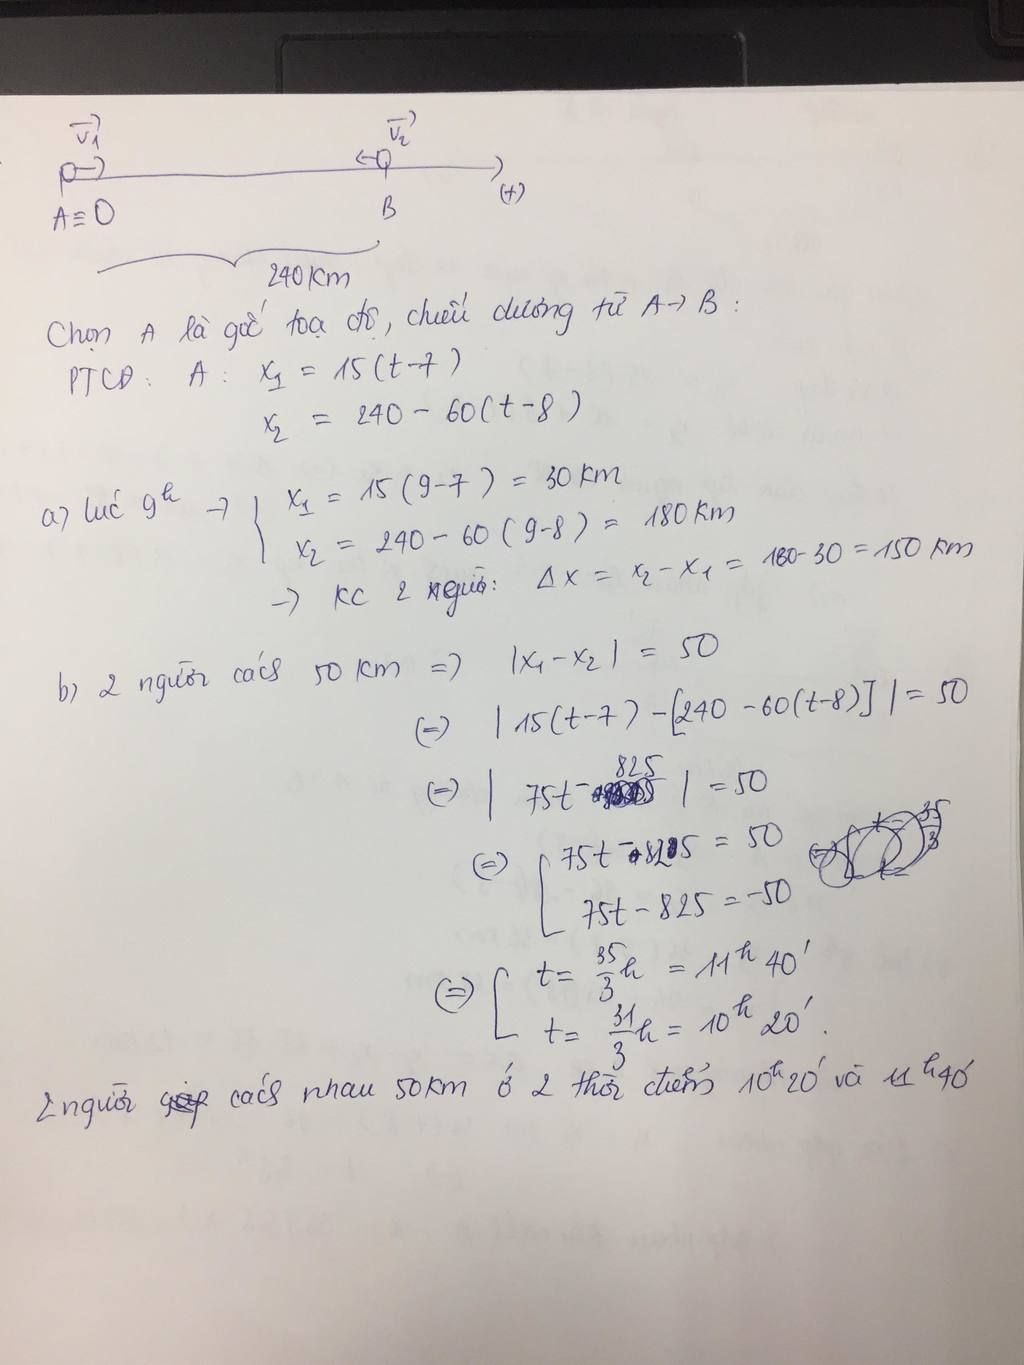 v₁ v₂
A ≡ O B (+)
240 km
Chọn A là gốc toạ độ, chiều dương từ A → B :
PTCĐ : A : x₁ = 15(t-7)
x₂ = 240 - 60(t-8)
a) lúc 9ʰ → { x₁ = 15(9-7) = 30 km
x₂ = 240 - 60(9-8) = 180 km
→ KC 2 người: Δx = x₂ - x₁ = 180-30 = 150 km
b) 2 người cách 50 km => |x₁ - x₂| = 50
(=) |15(t-7) - [240 - 60(t-8)]| = 50
(=) |75t - 825| = 50
(=) [ 75t - 825 = 50
75t - 825 = -50
(=) [ t = 35/3 h = 11ʰ 40'
t = 31/3 h = 10ʰ 20'.
2 người cách nhau 50 km ở 2 thời điểm 10ʰ20' và 11ʰ40'